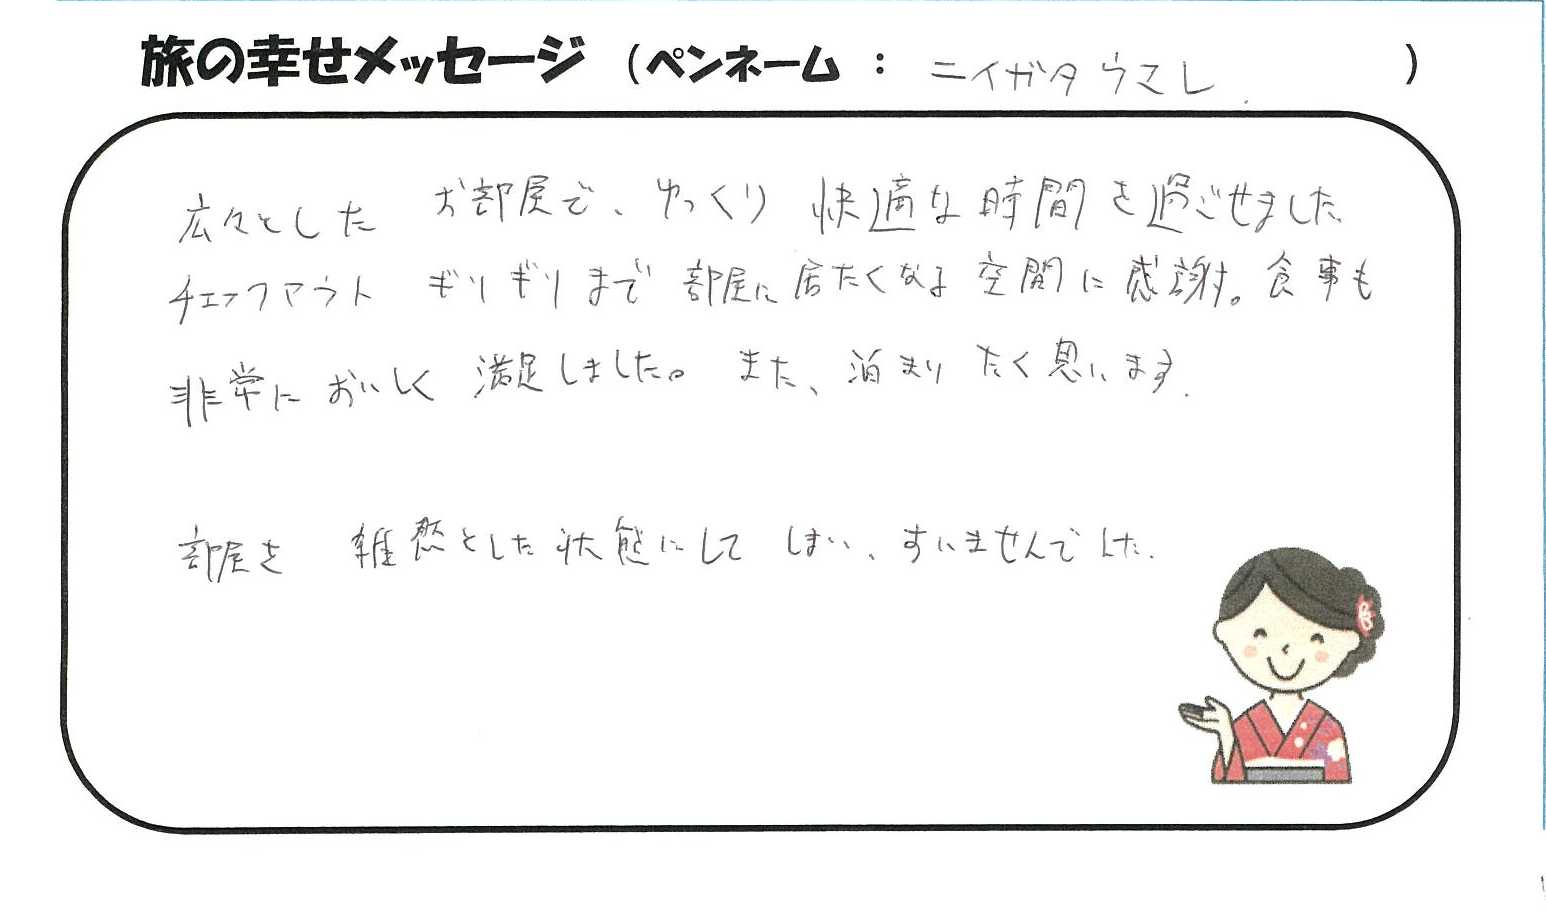 旅の幸せメッセージ（ペンネーム：ニイガタウマシ）
広々とした お部屋で、ゆっくり 快適な時間を過ごせました
チェックアウト ギリギリまで 部屋に居たくなる 空間に感謝。食事も
非常に おいしく 満足しました。 また、泊まり たく思います.
部屋を 雑然とした状態にして しまい、すいませんでした.